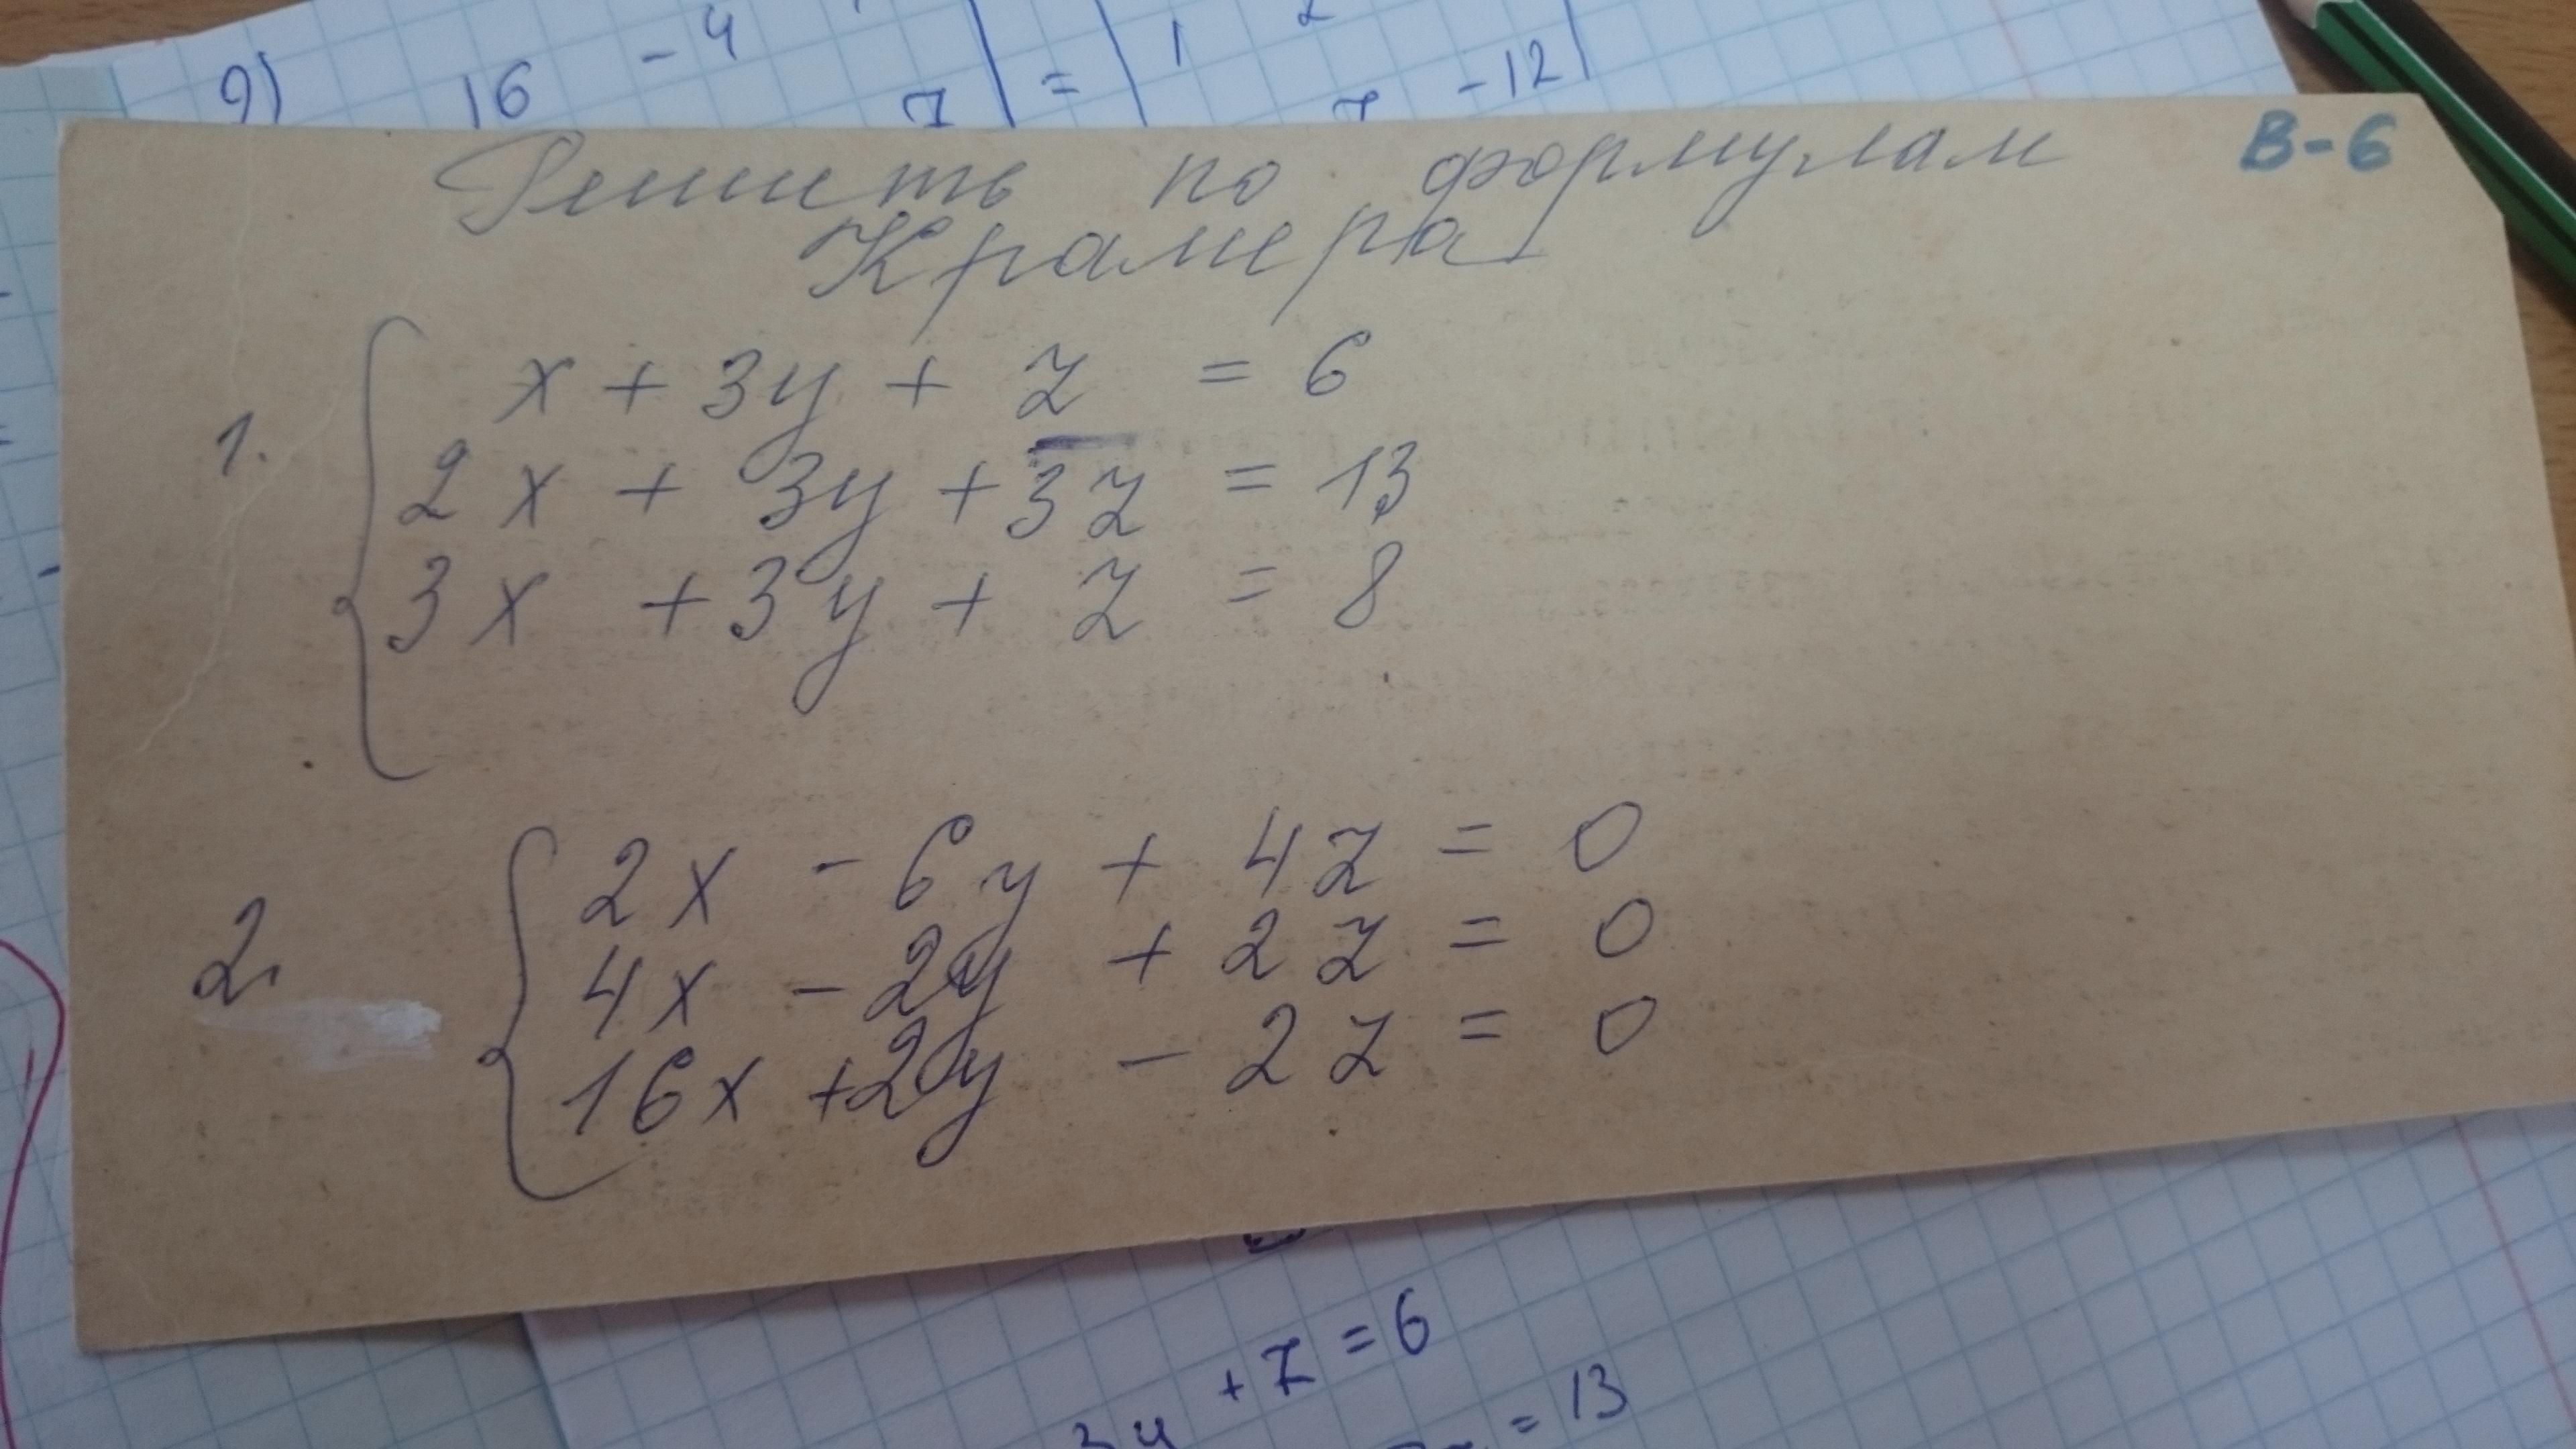 9) 16 -4
7 | = | 1 2
7 -12 |
Решить по формулам В-6
Крамера
x + 3y + z = 6
1. 2x + 3y + 3z = 13
3x + 3y + z = 8
2x - 6y + 4z = 0
2. 4x - 2y + 2z = 0
16x + 2y - 2z = 0
+ z = 6
3y = 13